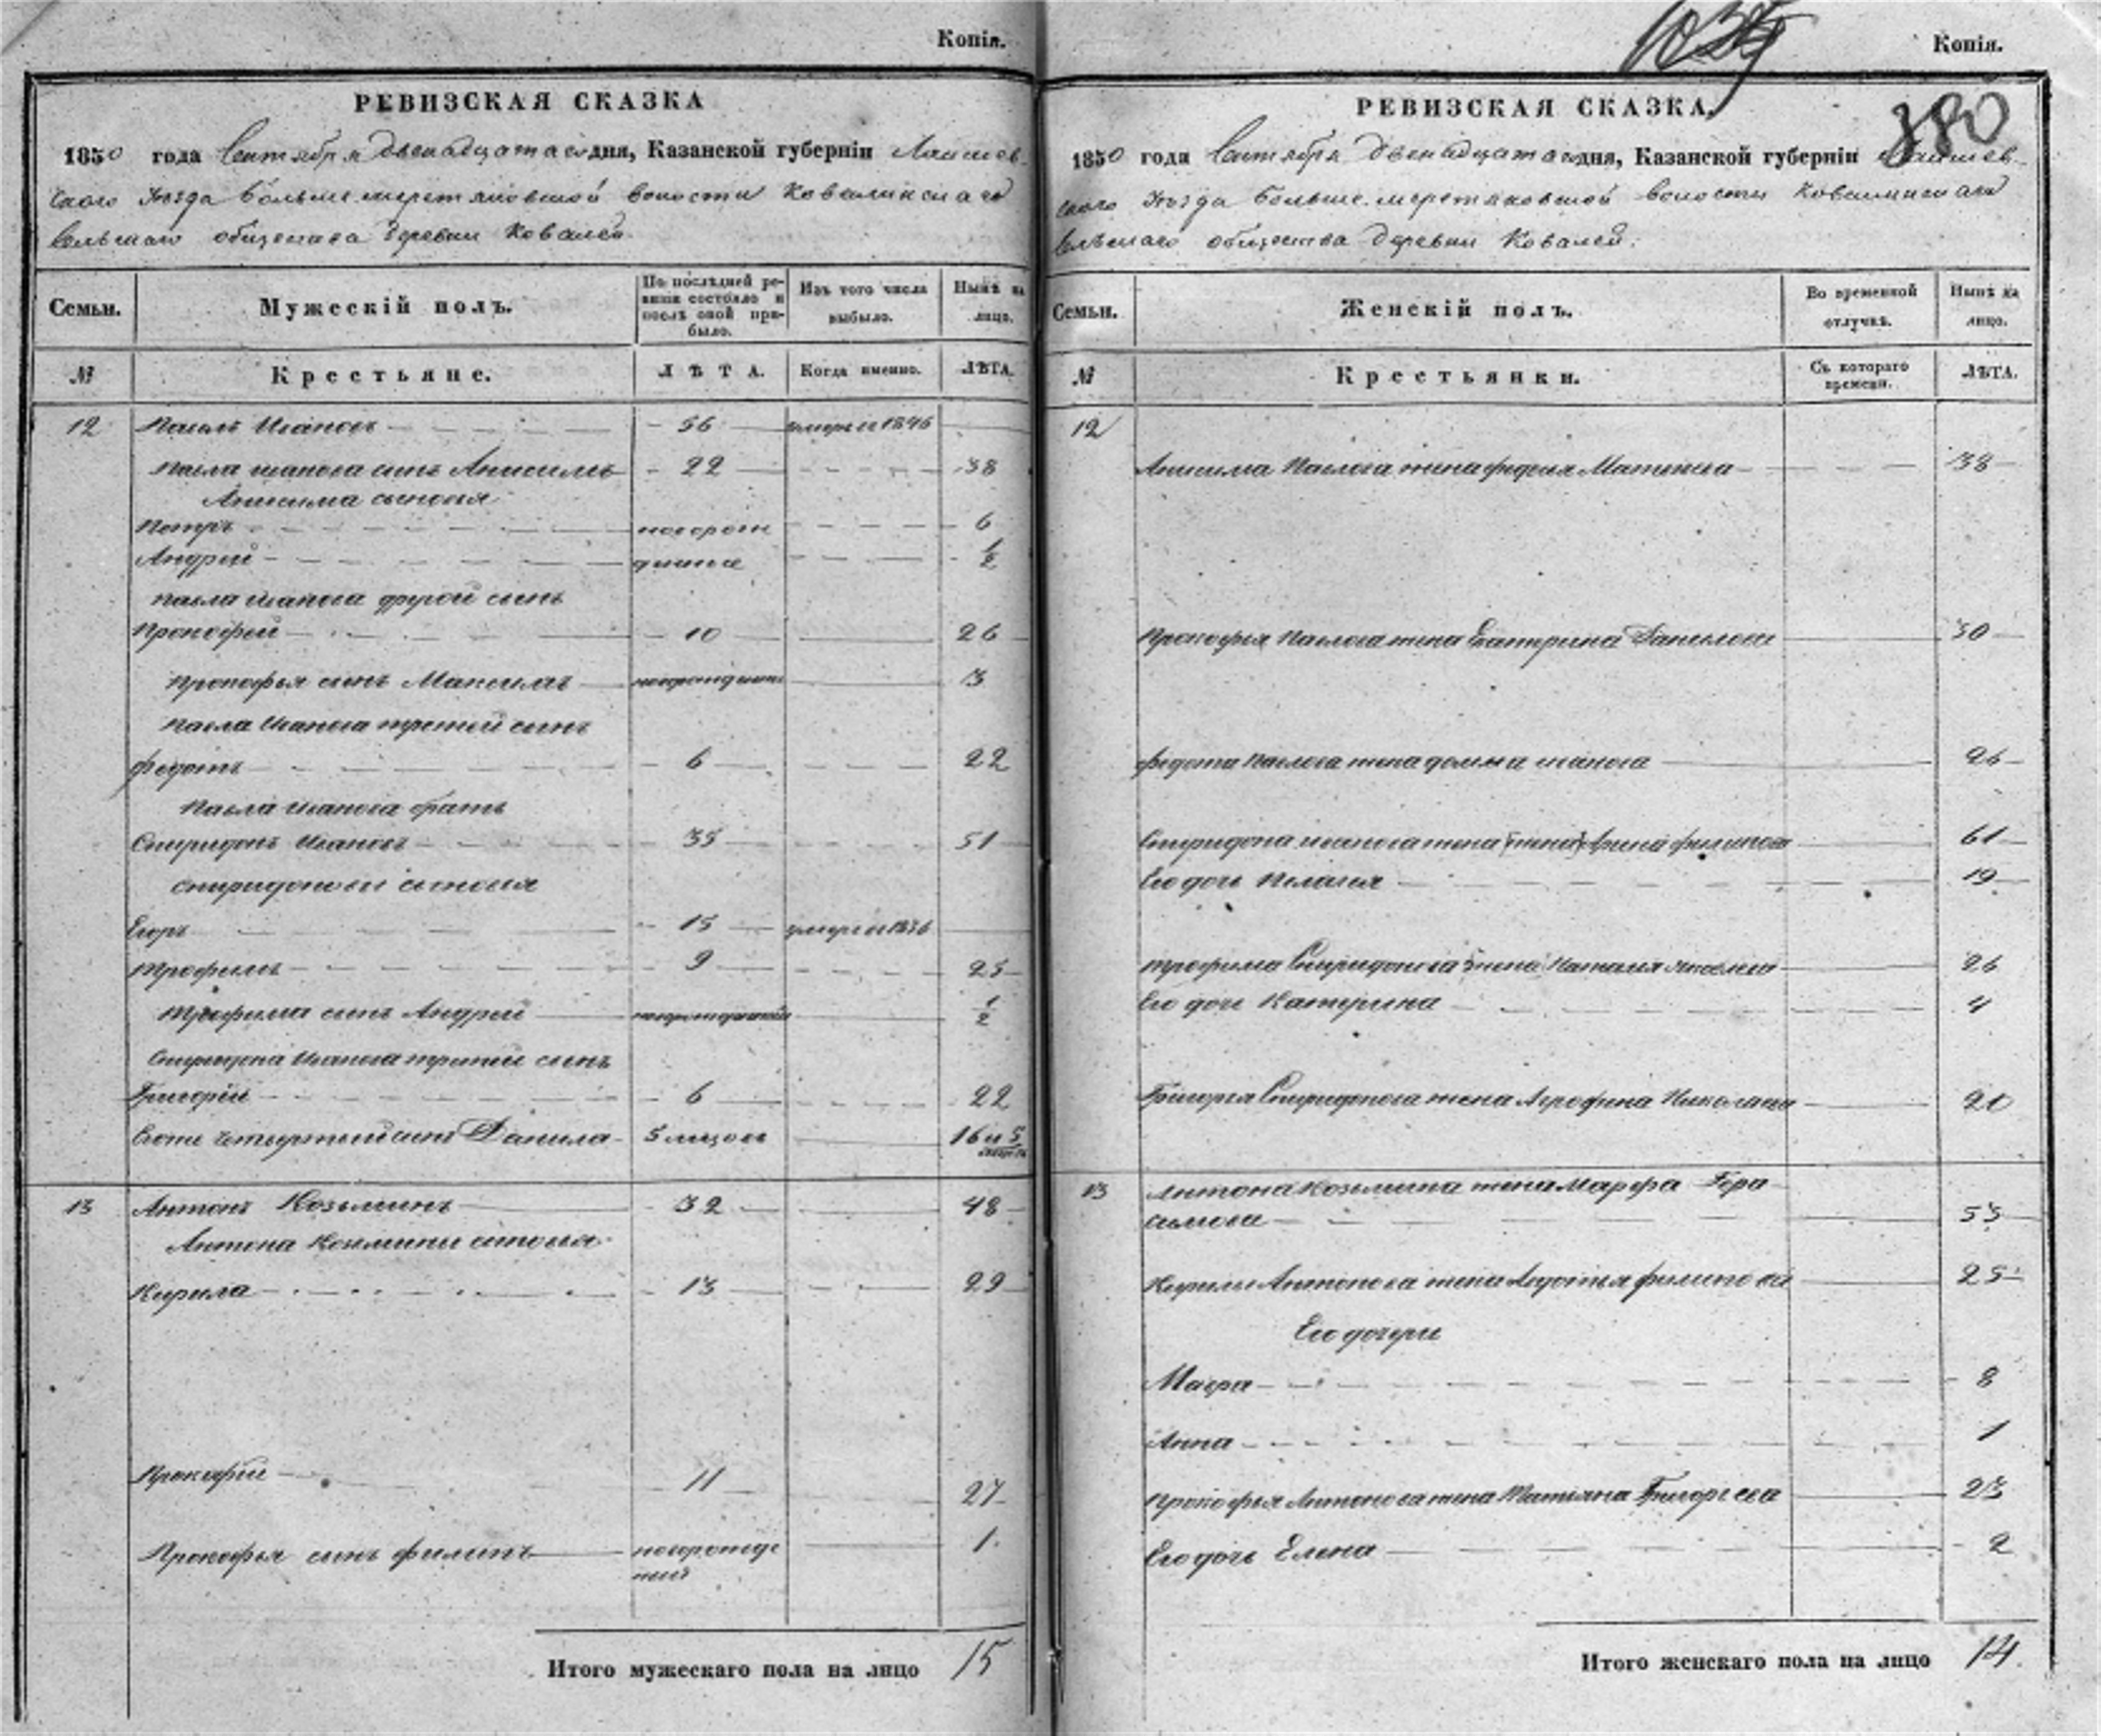 Копія.
РЕВИЗСКАЯ СКАЗКА
1850 года Сентября двенадцатаго дня, Казанской губерніи Лаишев-
скаго Уѣзда больше меретяковской волости Ковалинскаго
Сельскаго общества деревни Ковалей
Семьи. Мужескій полъ. По послѣдней ревизіи состояло и послѣ оной прибыло. Изъ того числа выбыло. Нынѣ на лицо.
№ Крестьяне. ЛѢТА. Когда именно. ЛѢТА.
12 Павелъ Ивановъ 56 умеръ в 1846
Павла Иванова сынъ Анисимъ 22 38
Анисима сыновья
Петръ новорож 6
Андрей денные 1/2
Павла Иванова другой сынъ
Прокофей 10 26
Прокофья сынъ Максимъ новорожденъ 3
Павла Иванова третий сынъ
Федотъ 6 22
Павла Иванова братъ
Спиридонъ Ивановъ 35 51
Спиридоновы сыновья
Егоръ 15 умеръ в 1836
Трофимъ 9 25
Трофима сынъ Андрей 1/2
Спиридона Иванова третий сынъ
Григорій 6 22
четвертый сынъ Данила 5 мѣсяцов 16 и 5
13 Антонъ Козьминъ 32 48
Антона Козьмина сыновья
Кирила 13 29
Прокофий 11 27
Прокофья сынъ Филипъ новорожде 1
ный
Итого мужескаго пола на лицо 15
Копія.
РЕВИЗСКАЯ СКАЗКА.
380
1850 года Сентября двенадцатаго дня, Казанской губерніи Лаишев-
скаго Уѣзда больше меретяковской волости Ковалинскаго
Сельскаго общества деревни Ковалей.
Семьи. Женскій полъ. Во временной отлучкѣ. Нынѣ на лицо.
№ Крестьянки. Съ котораго времени. ЛѢТА.
12
Анисима Павлова жена Федосья Матвеева 38
Прокофья Павлова жена Екатерина Данилова 30
Федота Павлова жена Домна Иванова 26
Спиридона Иванова жена Арина Филипова 61
Его дочь Пелагея 19
Трофима Спиридонова жена Наталья Яковлева 26
Его дочь Катерина 4
Григорья Спиридонова жена Агрофина Николаева 20
13 Антона Козьмина жена Марфа Гера
симова 53
Кирилы Антонова жена Авдотья Филипова 25
Его дочери
Мавра 8
Анна 1
Прокофья Антонова жена Татьяна Григорьева 23
Его дочь Елена 2
Итого женскаго пола на лицо 14.